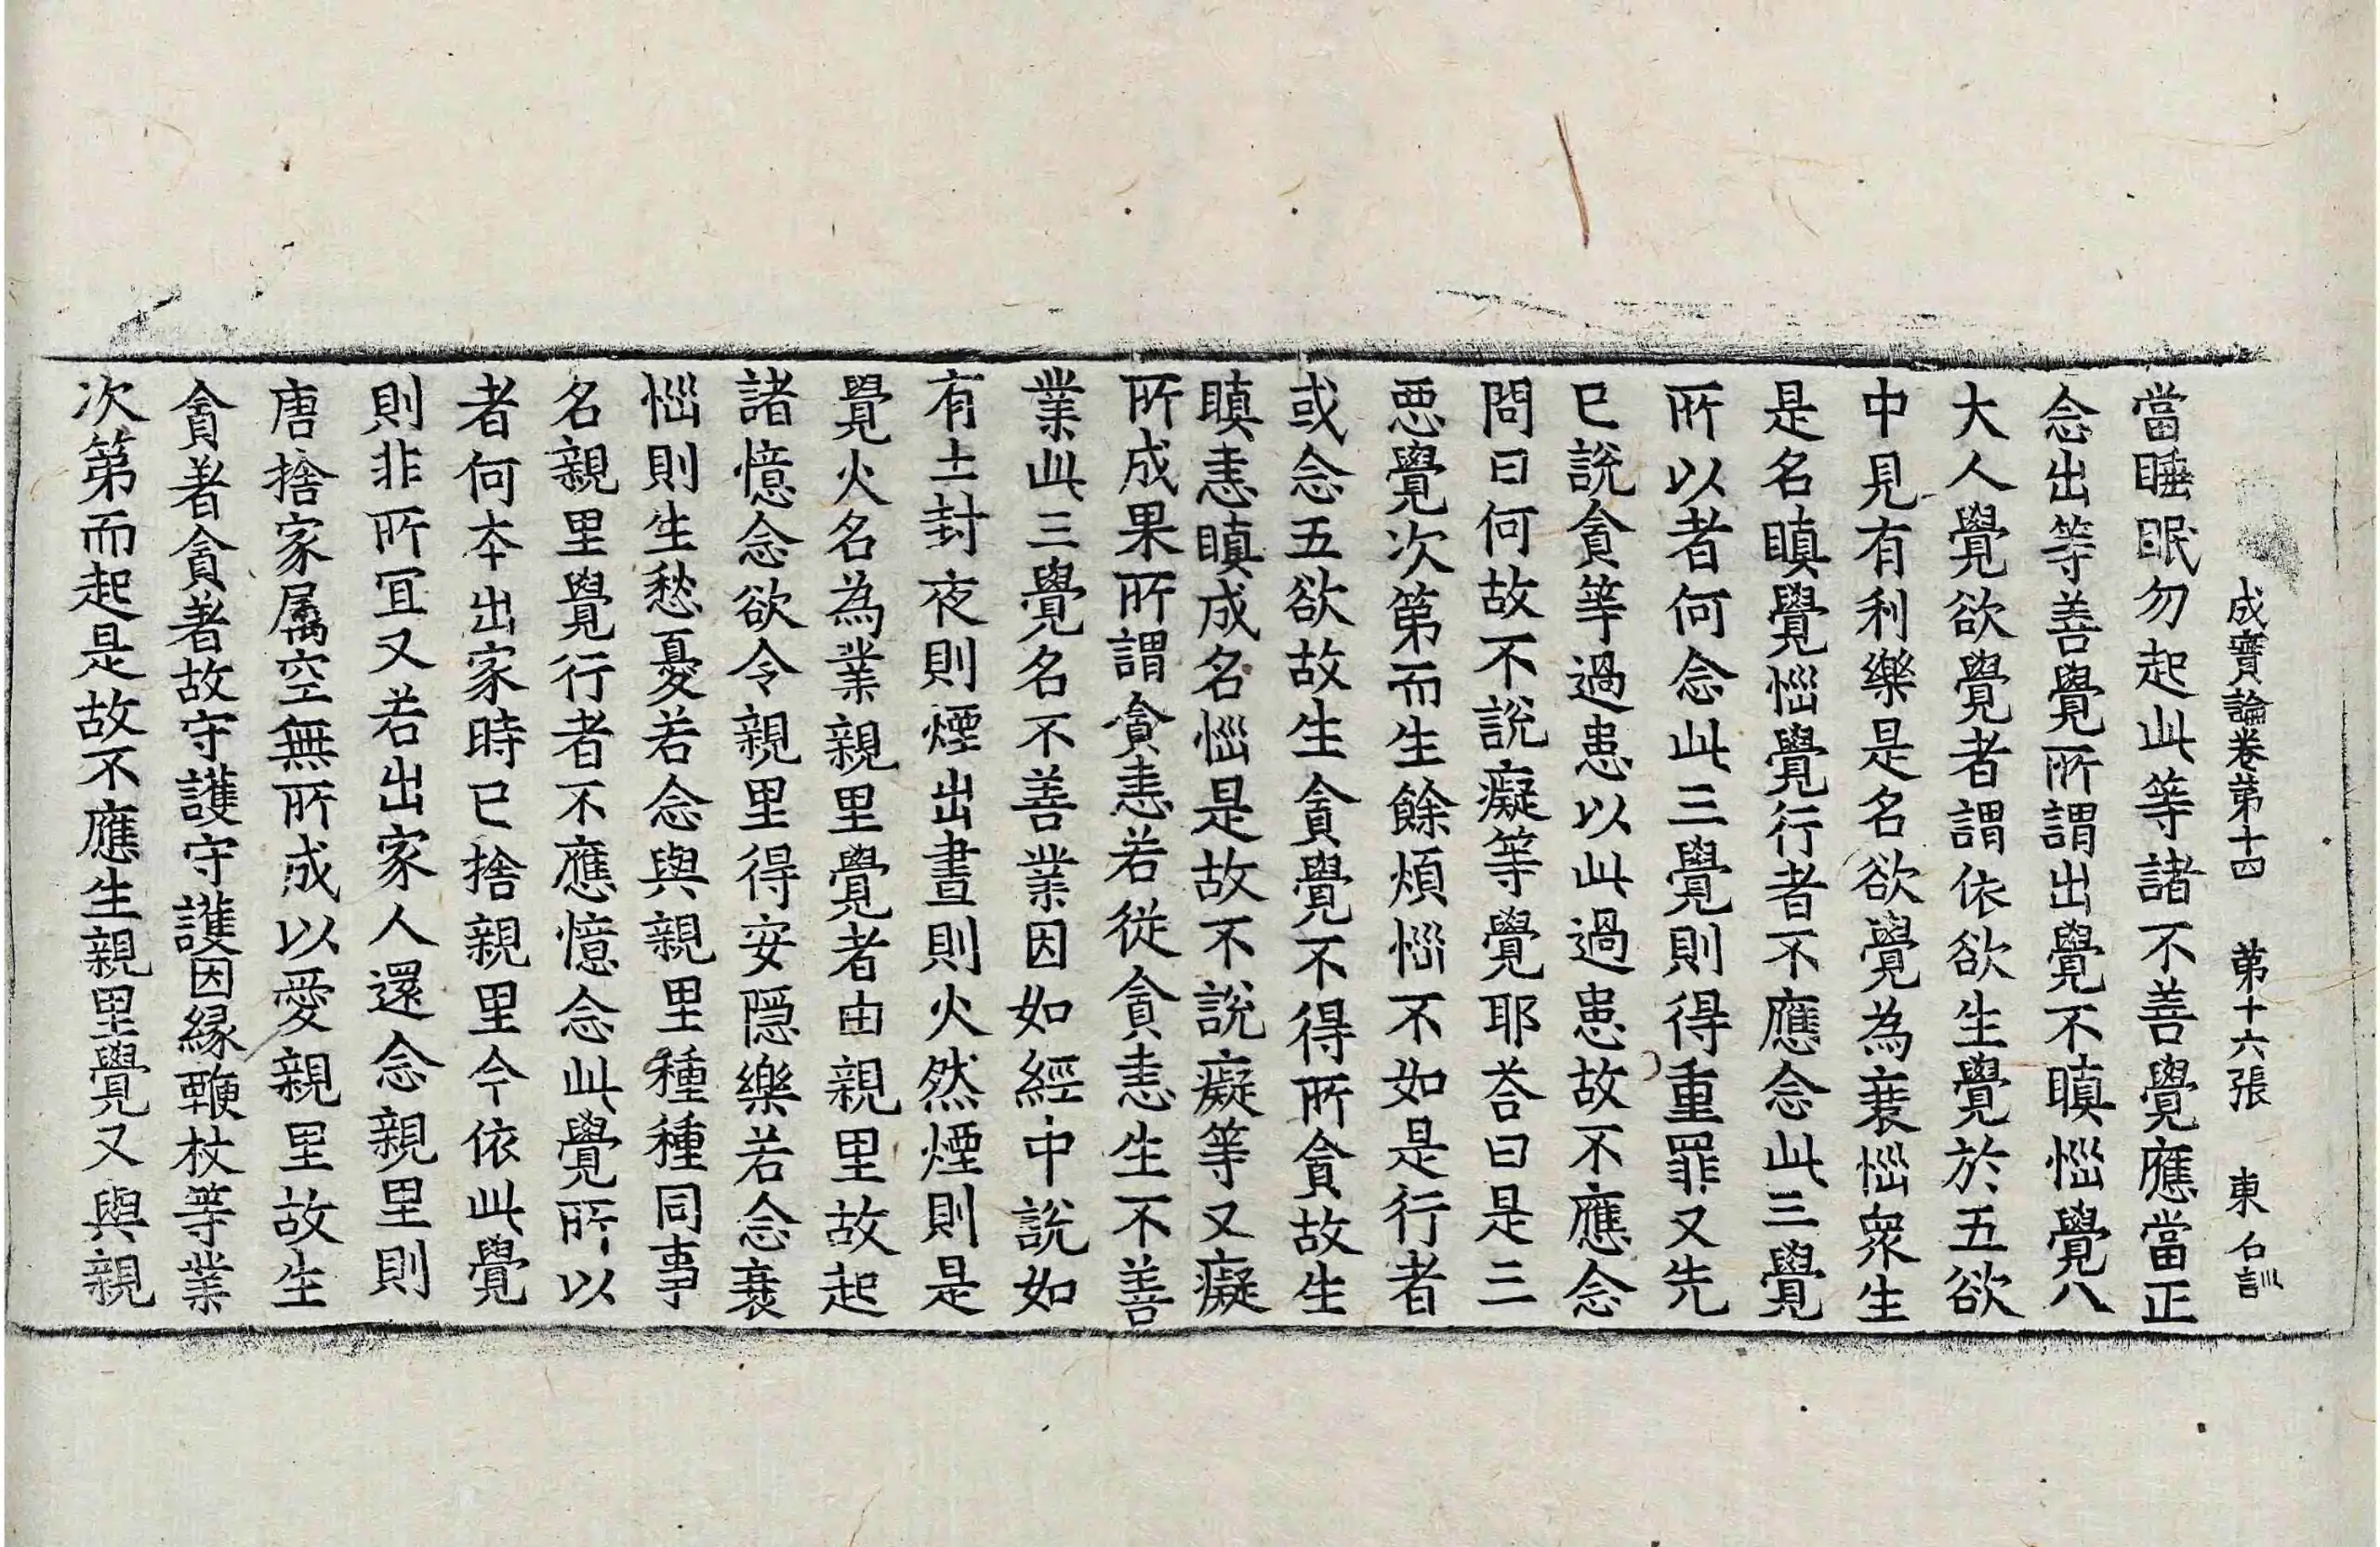 成實論卷第十四 第十六張 東 石訓
當睡眠勿起此等諸不善覺應當正
念出等善覺所謂出覺不瞋惱覺八
大人覺欲覺者謂依欲生覺於五欲
中見有利樂是名欲覺為衰惱衆生
是名瞋覺惱覺行者不應念此三覺
所以者何念此三覺則得重罪又先
已說貪等過患以此過患故不應念
問曰何故不說癡等覺耶荅曰是三
惡覺次第而生餘煩惱不如是行者
或念五欲故生貪覺不得所貪故生
瞋恚瞋成名惱是故不說癡等又癡
所成果所謂貪恚若從貪恚生不善
業此三覺名不善業因如經中說如
有土封夜則煙出晝則火然煙則是
覺火名為業親里覺者由親里故起
諸憶念欲令親里得安隱樂若念衰
惱則生愁憂若念與親里種種同事
名親里覺行者不應憶念此覺所以
者何本出家時已捨親里今依此覺
則非所宜又若出家人還念親里則
唐捨家屬空無所成以愛親里故生
貪著貪著故守護守護因緣鞭杖等業
次第而起是故不應生親里覺又與親